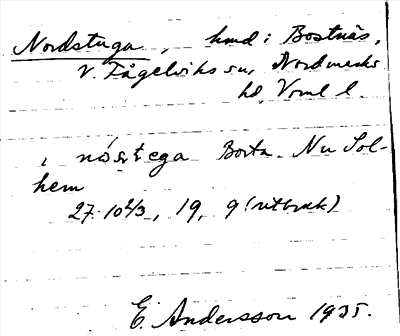 Nordstuga, hmd i Bostnäs,
V. Fågelviks sn, Nordmarks
hd, Vrml l.
i nó̱ṣtega Borta. Nu Sol-
hem
27. 10 2/3, 19, 9 (utbruk)
E. Andersson 1935.